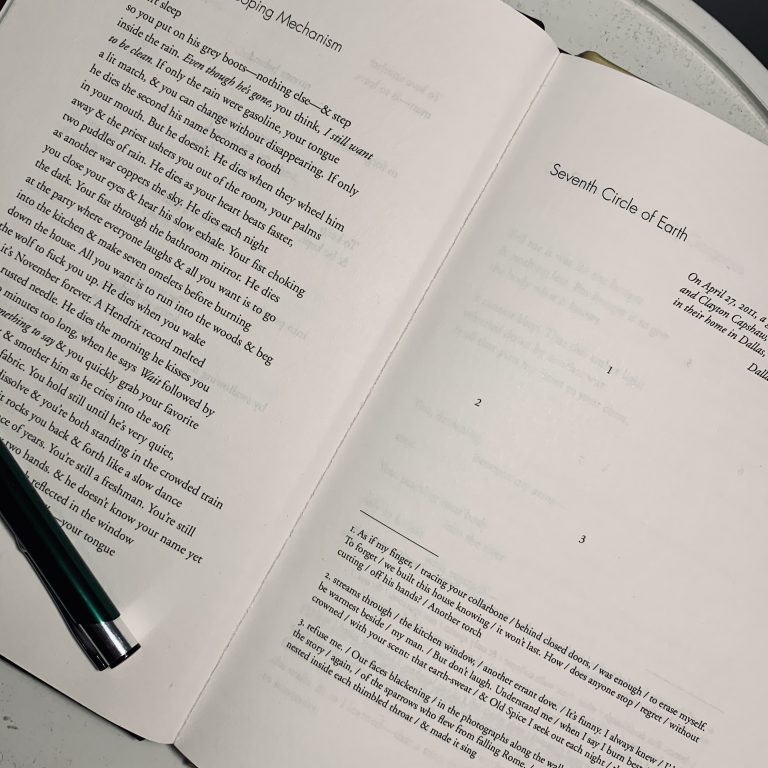 oping Mechanism
sleep
so you put on his grey boots—nothing else—& step
inside the rain. Even though he's gone, you think, I still want
to be clean. If only the rain were gasoline, your tongue
a lit match, & you can change without disappearing. If only
he dies the second his name becomes a tooth
in your mouth. But he doesn't. He dies when they wheel him
away & the priest ushers you out of the room, your palms
two puddles of rain. He dies as your heart beats faster,
as another war coppers the sky. He dies each night
you close your eyes & hear his slow exhale. Your fist choking
the dark. Your fist through the bathroom mirror. He dies
at the party where everyone laughs & all you want is to go
into the kitchen & make seven omelets before burning
down the house. All you want is to run into the woods & beg
the wolf to fuck you up. He dies when you wake
it's November forever. A Hendrix record melted
rusted needle. He dies the morning he kisses you
minutes too long, when he says Wait followed by
mething to say & you quickly grab your favorite
& smother him as he cries into the soft
fabric. You hold still until he's very quiet,
dissolve & you're both standing in the crowded train
rocks you back & forth like a slow dance
ce of years. You're still a freshman. You're still
two hands. & he doesn't know your name yet
reflected in the window
your tongue
Seventh Circle of Earth
On April 27, 2011, a
and Clayton Capshaw,
in their home in Dallas,
Dalla
1
2
3
1. As if my finger, / tracing your collarbone / behind closed doors, / was enough / to erase myself.
To forget / we built this house knowing / it won't last. How / does anyone stop / regret / without
cutting / off his hands? / Another torch
2. streams through / the kitchen window, / another errant dove. / It's funny. I always knew / I'd
be warmest beside / my man. / But don't laugh. Understand me / when I say I burn best
crowned / with your scent: that earth-sweat / & Old Spice I seek out each night /
3. refuse me. / Our faces blackening / in the photographs along the wall
the story / again, / of the sparrows who flew from falling Rome, /
nested inside each thimbled throat / & made it sing